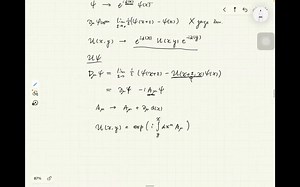 ψ → e^{iα(x)} ψ(x)
∂_μ ψ = lim_{ε→0} 1/ε (ψ(x+ε) − ψ(x)) X gauge
U(x,y) → e^{iα(x)} U(x,y) e^{−iα(y)}
Uψ
D_μ ψ = lim_{ε→0} 1/ε (ψ(x+ε) − U(x+ε,x) ψ(x))
= ∂_μ ψ − i A_μ ψ
A_μ → A_μ + ∂_μ α(x)
U(x,y) = exp(i ∫_y^x dx^μ A_μ)